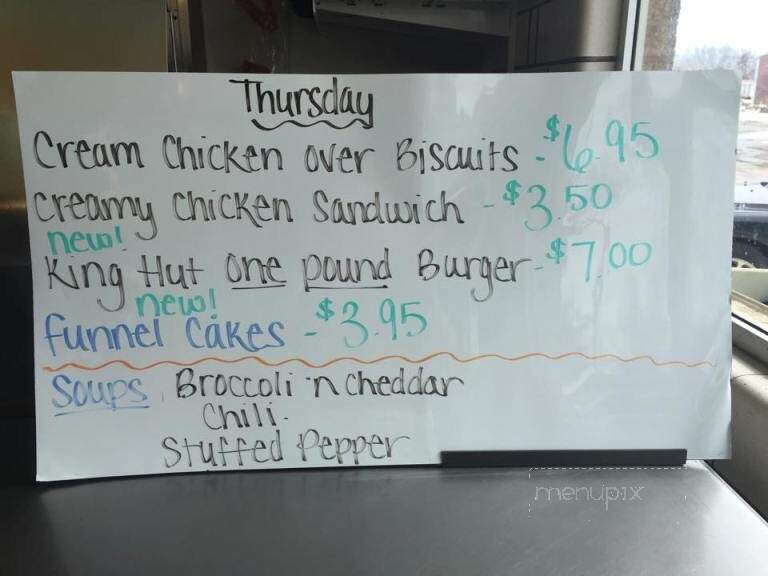 Thursday
Cream Chicken over Biscuits - $6.95
Creamy Chicken Sandwich - $3.50
new!
King Hut One pound Burger - $7.00
new!
Funnel Cakes - $3.95
Soups Broccoli 'n Cheddar
Chili.
Stuffed Pepper
menupix